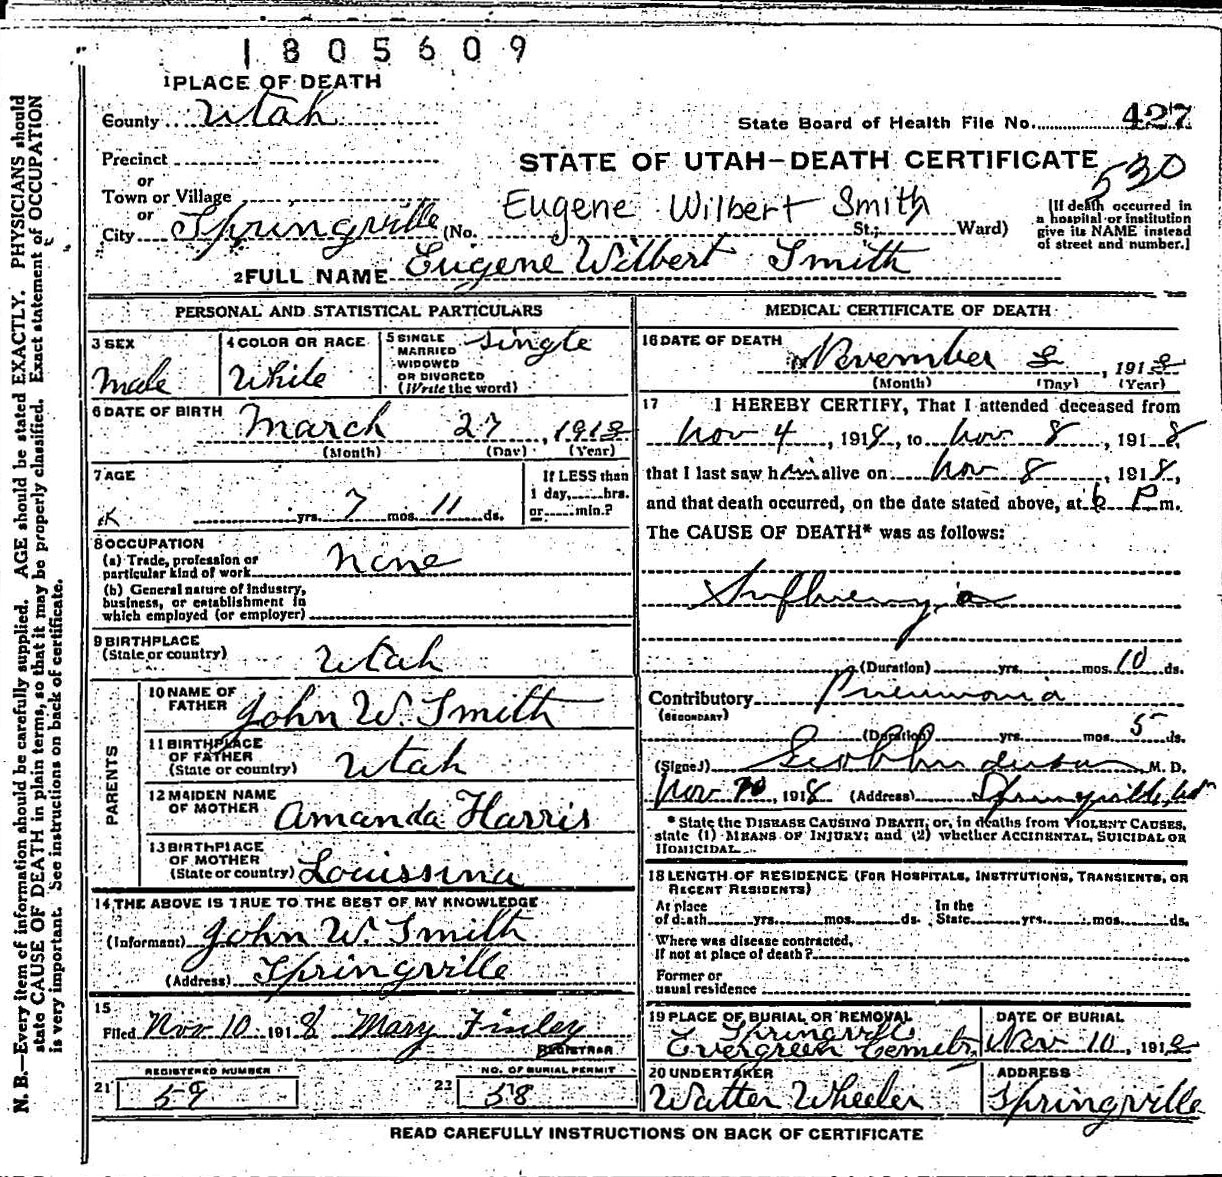 1805609
1 PLACE OF DEATH
County Utah
State Board of Health File No. 427
Precinct
STATE OF UTAH—DEATH CERTIFICATE
530
or
Town or Village
or
City Springville (No. Eugene Wilbert Smith St.; Ward)
[If death occurred in
a hospital or institution
give its NAME instead
of street and number.]
2 FULL NAME Eugene Wilbert Smith
PERSONAL AND STATISTICAL PARTICULARS
3 SEX
Male
4 COLOR OR RACE
White
5 SINGLE
MARRIED
WIDOWED
OR DIVORCED
(Write the word)
Single
6 DATE OF BIRTH March 27, 1918
(Month) (Day) (Year)
7 AGE
yrs. 7 mos. 11 ds.
If LESS than
1 day, hrs.
or min.?
8 OCCUPATION
(a) Trade, profession or
particular kind of work None
(b) General nature of industry,
business, or establishment in
which employed (or employer)
9 BIRTHPLACE
(State or country) Utah
PARENTS
10 NAME OF
FATHER John W. Smith
11 BIRTHPLACE
OF FATHER
(State or country) Utah
12 MAIDEN NAME
OF MOTHER Amanda Harris
13 BIRTHPLACE
OF MOTHER
(State or country) Louissina
14 THE ABOVE IS TRUE TO THE BEST OF MY KNOWLEDGE
(Informant) John W. Smith
(Address) Springville
15
Filed Nov 10 1918 Mary Finley
REGISTRAR
REGISTERED NUMBER
21 59
NO. OF BURIAL PERMIT
22 58
MEDICAL CERTIFICATE OF DEATH
16 DATE OF DEATH
November 8, 1918
(Month) (Day) (Year)
17 I HEREBY CERTIFY, That I attended deceased from
Nov 4, 1918, to Nov 8, 1918,
that I last saw him alive on Nov 8, 1918,
and that death occurred, on the date stated above, at 6 P m.
The CAUSE OF DEATH* was as follows:
Influenza
(Duration) yrs. mos. 10 ds.
Contributory Pneumonia
(SECONDARY)
(Duration) yrs. mos. 5 ds.
(Signed) M. D.
Nov 10, 1918 (Address) Springville, Ut
* State the DISEASE CAUSING DEATH, or, in deaths from VIOLENT CAUSES,
state (1) MEANS OF INJURY; and (2) whether ACCIDENTAL, SUICIDAL OR
HOMICIDAL.
18 LENGTH OF RESIDENCE (FOR HOSPITALS, INSTITUTIONS, TRANSIENTS, OR
RECENT RESIDENTS)
At place In the
of death yrs. mos. ds. State yrs. mos. ds.
Where was disease contracted,
If not at place of death?
Former or
usual residence
19 PLACE OF BURIAL OR REMOVAL
Springville
Evergreen Cemetery
DATE OF BURIAL
Nov 10, 1918
20 UNDERTAKER
Walter Wheeler
ADDRESS
Springville
READ CAREFULLY INSTRUCTIONS ON BACK OF CERTIFICATE
N. B.—Every item of information should be carefully supplied. AGE should be stated EXACTLY. PHYSICIANS should
state CAUSE OF DEATH in plain terms, so that it may be properly classified. Exact statement of OCCUPATION
is very important. See instructions on back of certificate.